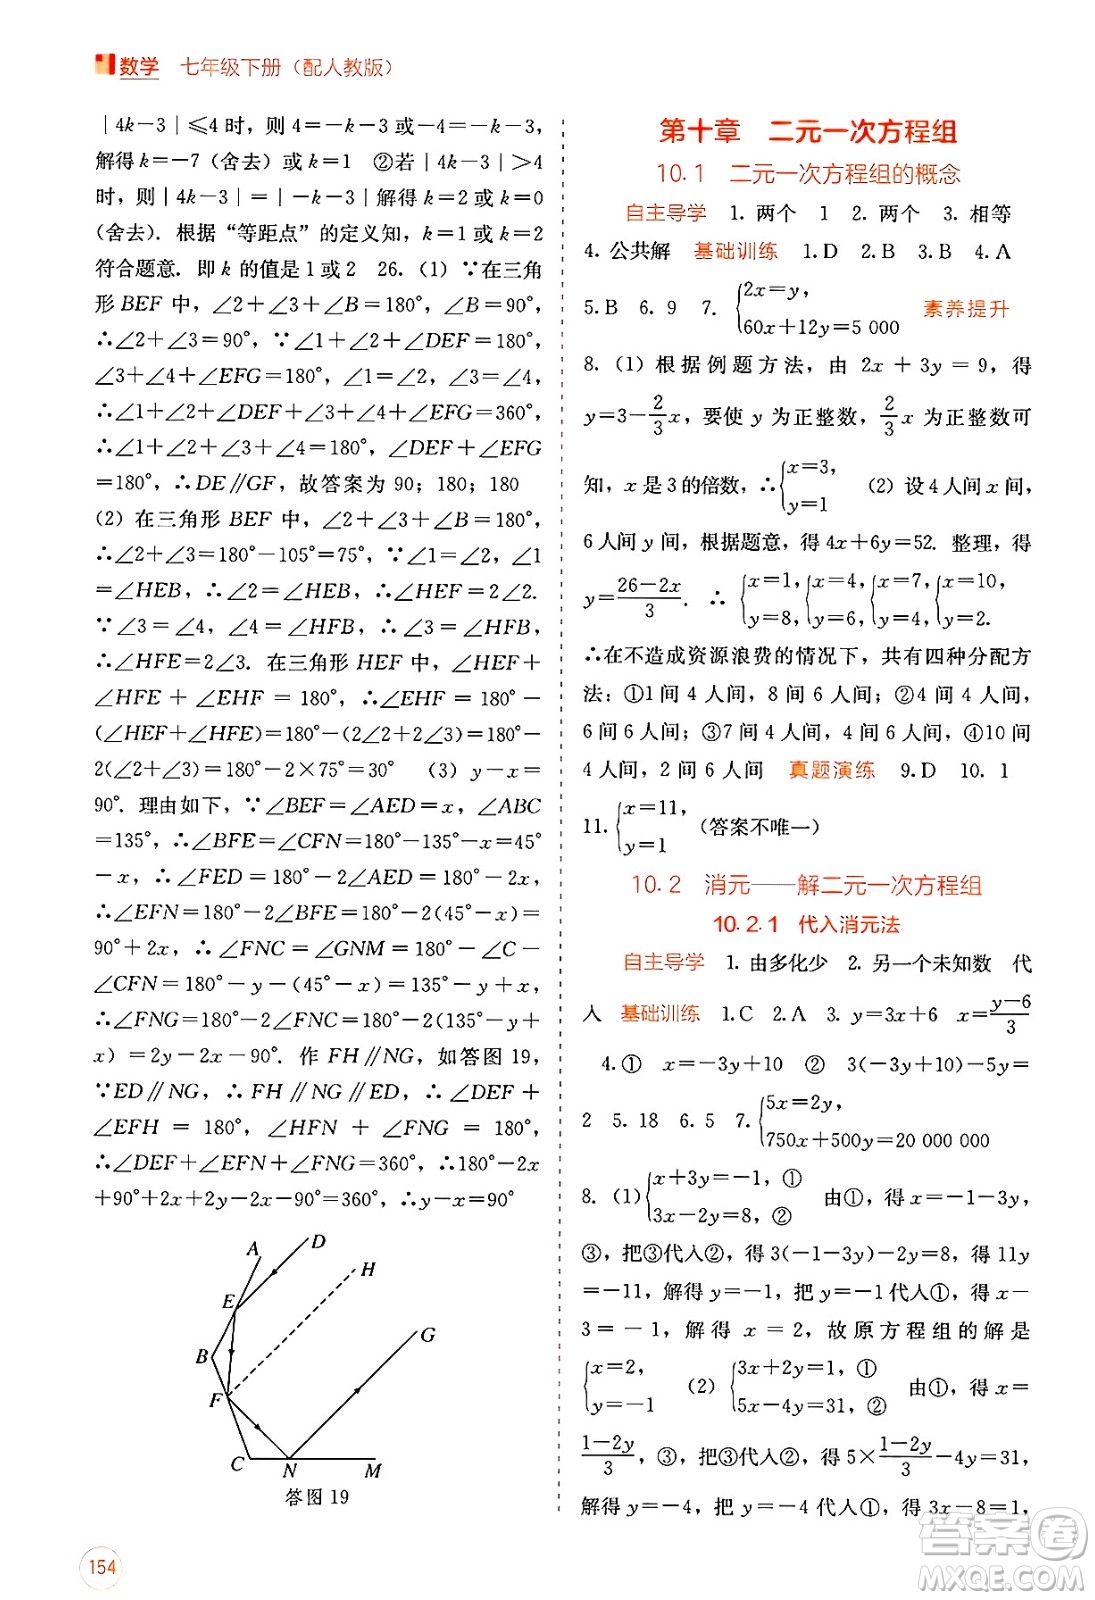 数学 七年级下册（配人教版）
|4k－3|≤4时，则4＝－k－3或－4＝－k－3，
解得k＝－7（舍去）或k＝1 ②若|4k－3|＞4
时，则|4k－3|＝|－k－3|解得k＝2或k＝0
（舍去）．根据“等距点”的定义知，k＝1或k＝2
符合题意．即k的值是1或2 26．（1）∵在三角
形BEF中，∠2＋∠3＋∠B＝180°，∠B＝90°，
∴∠2＋∠3＝90°，∵∠1＋∠2＋∠DEF＝180°，
∠3＋∠4＋∠EFG＝180°，
∴∠1＋∠2＋∠DEF＋∠3＋∠4＋∠EFG＝360°，
∴∠1＋∠2＋∠3＋∠4＝180°，∠DEF＋∠EFG
＝180°，∴DE∥GF，故答案为90；180；180
（2）在三角形BEF中，∠2＋∠3＋∠B＝180°，
∴∠2＋∠3＝180°－105°＝75°，∵∠1＝∠2，∠1
＝∠HEB，∴∠2＝∠HEB，∴∠HEF＝2∠2．
∵∠3＝∠4，∠4＝∠HFB，∴∠3＝∠HFB，
∴∠HFE＝2∠3．在三角形HEF中，∠HEF＋
∠HFE＋∠EHF＝180°，∴∠EHF＝180°－
(∠HEF＋∠HFE)＝180°－2(∠2＋∠3)＝180°－
2(∠2＋∠3)＝180°－2×75°＝30° （3）y－x＝
90°．理由如下，∵∠BEF＝∠AED＝x，∠ABC
＝135°，∴∠BFE＝∠CFN＝180°－135°－x＝45°
－x，∴∠FED＝180°－2∠AED＝180°－2x，
∴∠EFN＝180°－2∠BFE＝180°－2(45°－x)＝
90°＋2x，∴∠FNC＝∠GNM＝180°－∠C－
∠EFN＝180°－y－(45°－x)＝135°－y＋x，
∴∠FNG＝180°－2∠FNC＝180°－2(135°－y＋
x)＝2y－2x－90°．作FH∥NG，如答图19，
∵ED∥NG，∴FH∥NG∥ED，∴∠DEF＋
∠EFH＝180°，∠HFN＋∠FNG＝180°，
∴∠DEF＋∠EFN＋∠FNG＝360°，∴180°－2x
＋90°＋2x＋2y－2x－90°＝360°，∴y－x＝90°
A D
H
E
G
B
F
C N M
答图19
154
第十章 二元一次方程组
10.1 二元一次方程组的概念
自主导学 1．两个 1 2．两个 3．相等
4．公共解 基础训练 1．D 2．B 3．B 4．A
5．B 6．9 7．{2x＝y， 60x＋12y＝5 000 素养提升
8．（1）根据例题方法，由2x＋3y＝9，得
y＝3－2/3x，要使y为正整数，2/3x为正整数可
知，x是3的倍数，∴{x＝3， y＝1 （2）设4人间x间，
6人间y间，根据题意，得4x＋6y＝52．整理，得
y＝(26－2x)/3．∴{x＝1， y＝8，{x＝4， y＝6，{x＝7， y＝4，{x＝10， y＝2．
∴在不造成资源浪费的情况下，共有四种分配方
法：①1间4人间，8间6人间；②4间4人间，
6间6人间；③7间4人间，4间6人间，④10间
4人间，2间6人间 真题演练 9．D 10．1
11．{x＝11， y＝1 （答案不唯一）
10.2 消元——解二元一次方程组
10.2.1 代入消元法
自主导学 1．由多化少 2．另一个未知数 代
入 基础训练 1．C 2．A 3．y＝3x＋6 x＝(y－6)/3
4．① x＝－3y＋10 ② 3(－3y＋10)－5y＝
2 5．18 6．5 7．{5x＝2y， 750x＋500y＝20 000 000
8．（1）{x＋3y＝－1，① 3x－2y＝8，② 由①，得x＝－1－3y
③，把③代入②，得3(－1－3y)－2y＝8，得11y
＝－11，解得y＝－1，把y＝－1代入①，得x－
3＝－1，解得x＝2，故原方程组的解是
{x＝2， y＝－1 （2）{3x＋2y＝1，① 5x－4y＝31，② 由①，得x＝
(1－2y)/3③，把③代入②，得5×(1－2y)/3－4y＝31，
解得y＝－4，把y＝－4代入①，得3x－8＝1，
答案卷
MXQE.COM